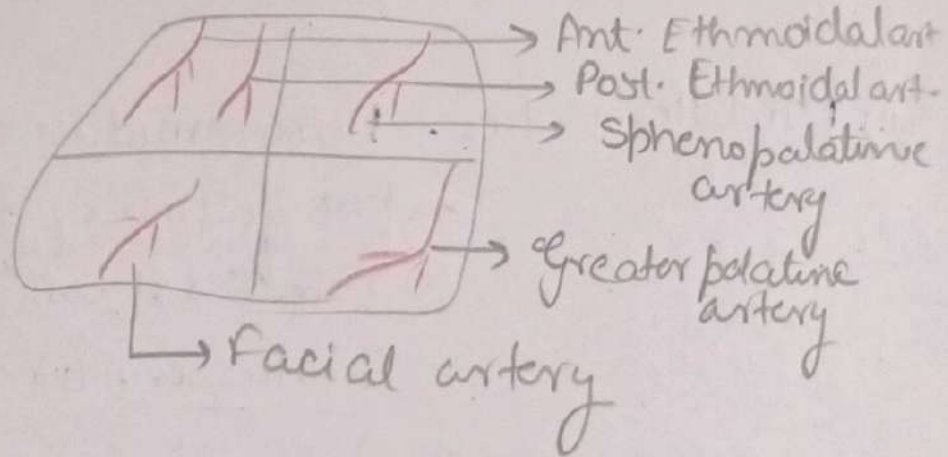 Ant. Ethmoidal art
Post. Ethmoidal art.
Sphenopalatine
artery
Greater palatine
artery
Facial artery